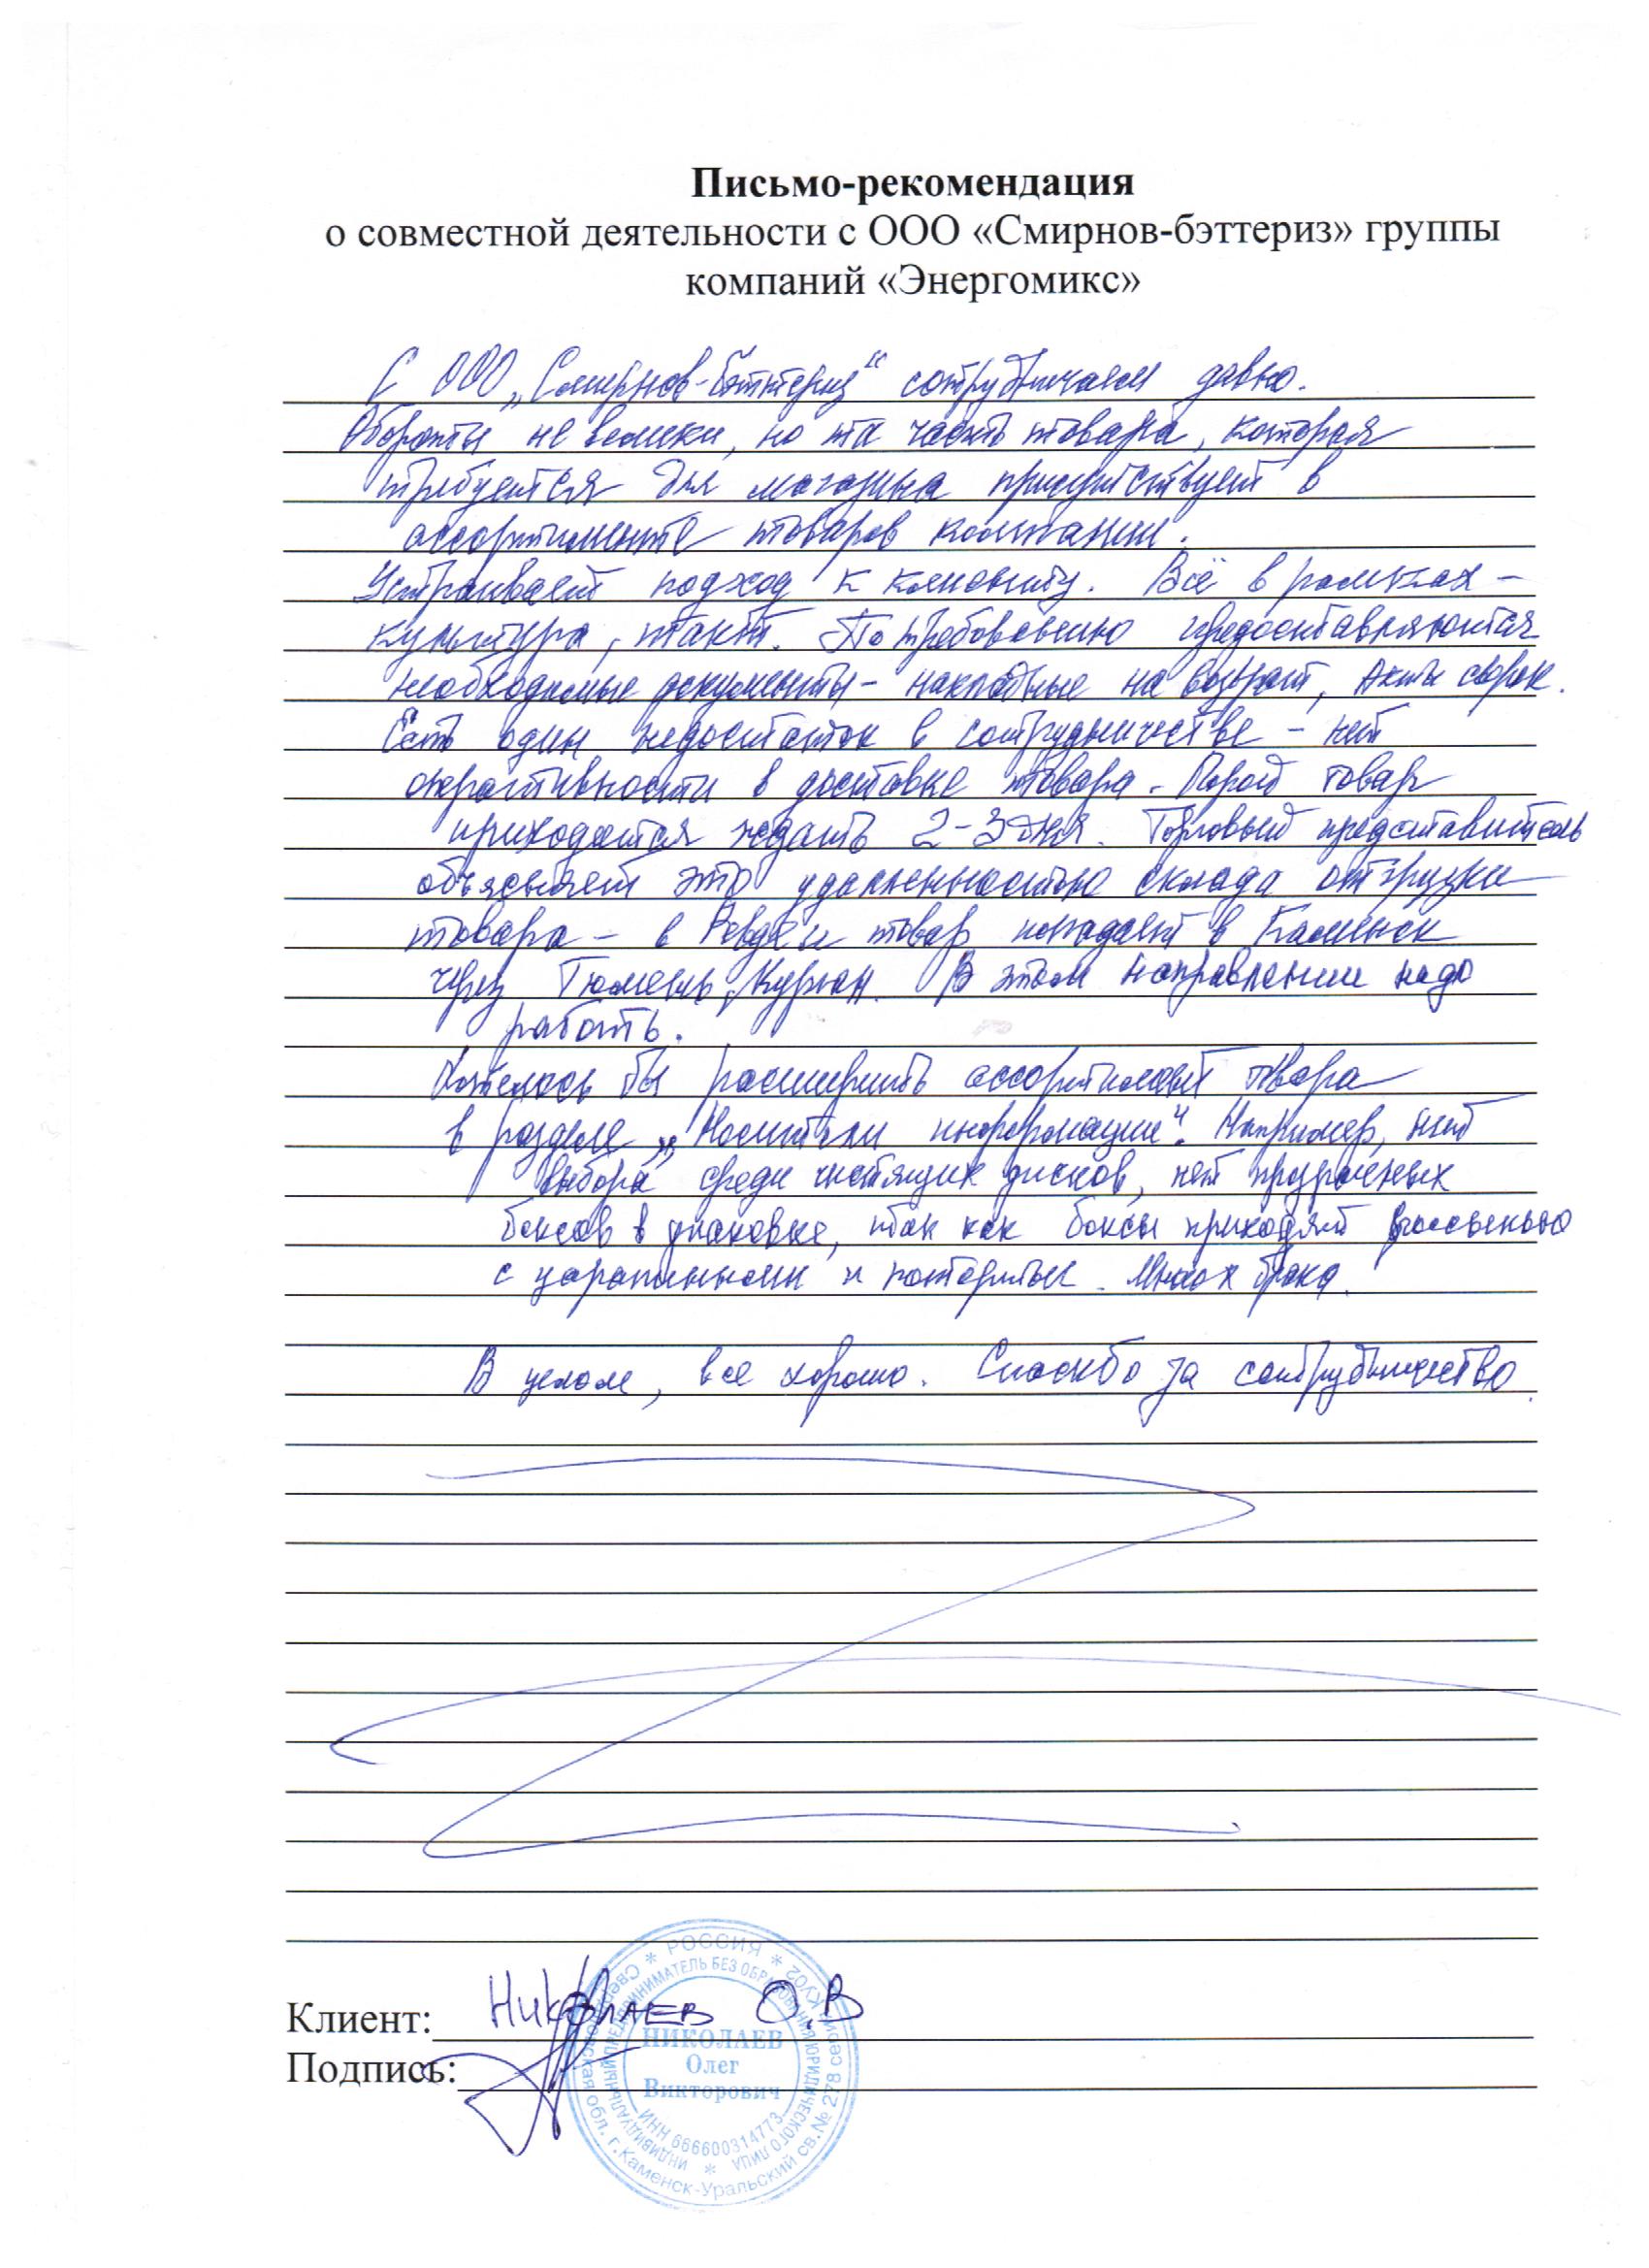 Письмо-рекомендация
о совместной деятельности с ООО «Смирнов-бэттериз» группы
компаний «Энергомикс»
С ООО „Смирнов-Бэттериз“ сотрудничаем давно.
Обороты не велики, но та часть товара, которая
требуется для магазина присутствует в
ассортименте товаров компании.
Устраивает подход к клиенту. Всё в рамках –
культура, такт. По требованию предоставляются
необходимые документы – накладные на возврат, Акты сверок.
Есть один недостаток в сотрудничестве – нет
оперативности в доставке товара. Порой товар
приходится ждать 2-3 дня. Торговый представитель
объясняет это удаленностью склада отгрузки
товара – в Ревде и товар попадает в Каменск
через Тюмень, Курган. В этом направлении надо
работать.
Хотелось бы расширить ассортимент товара
в разделе „Носители информации“. Например, нет
выбора среди чистящих дисков, нет прозрачных
боксов в упаковке, так как боксы приходят россыпью
с царапинами и потертые. Много брака.
В целом, все хорошо. Спасибо за сотрудничество.
Клиент: Николаев О.В
Подпись:
РОССИЯ * Свердловская обл. г. Каменск-Уральский св. № 278 серии КУ02 *
ИНДИВИДУАЛЬНЫЙ ПРЕДПРИНИМАТЕЛЬ БЕЗ ОБРАЗОВАНИЯ ЮРИДИЧЕСКОГО ЛИЦА *
НИКОЛАЕВ
Олег
Викторович
ИНН 666600314773